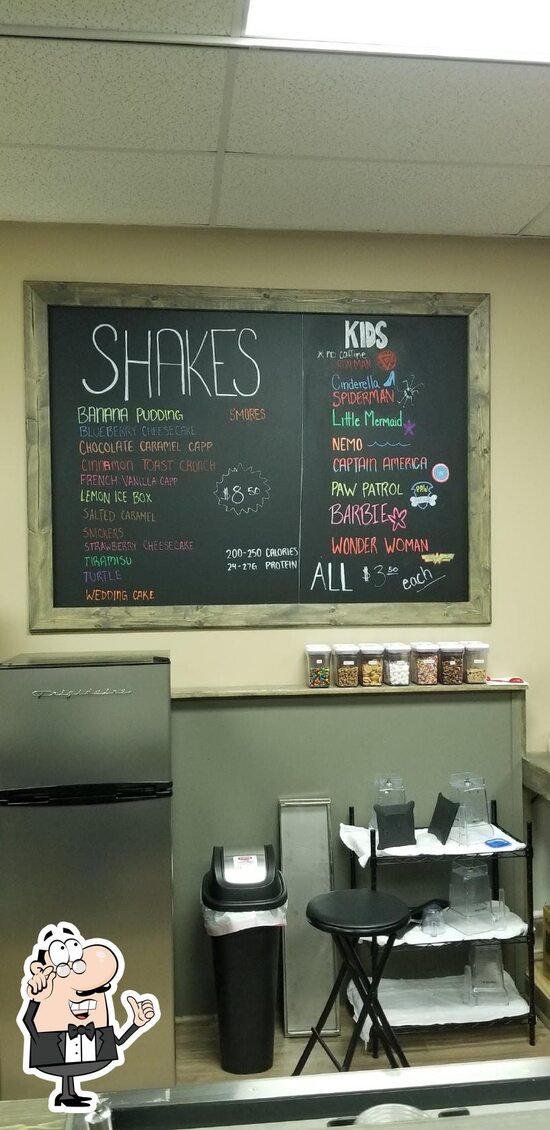 SHAKES
BANANA PUDDING
S'MORES
BLUEBERRY CHEESECAKE
CHOCOLATE CARAMEL CAPP
CINNAMON TOAST CRUNCH
FRENCH VANILLA CAPP
LEMON ICE BOX
SALTED CARAMEL
SNICKERS
STRAWBERRY CHEESECAKE
TIRAMISU
TURTLE
WEDDING CAKE
$8.50
200-250 CALORIES
24-27G PROTEIN
KIDS
* no caffine
IRON MAN
Cinderella
SPIDERMAN
Little Mermaid
NEMO
CAPTAIN AMERICA
PAW PATROL
PAW
BARBIE
WONDER WOMAN
ALL $3.50 each
Frigidaire